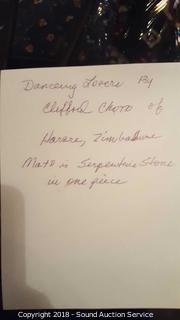 Dancing Lovers By
Clifford Choto of
Harare, Zimbabwe
Mat's is Serpentine Stone
in one piece
Copyright 2018 - Sound Auction Service